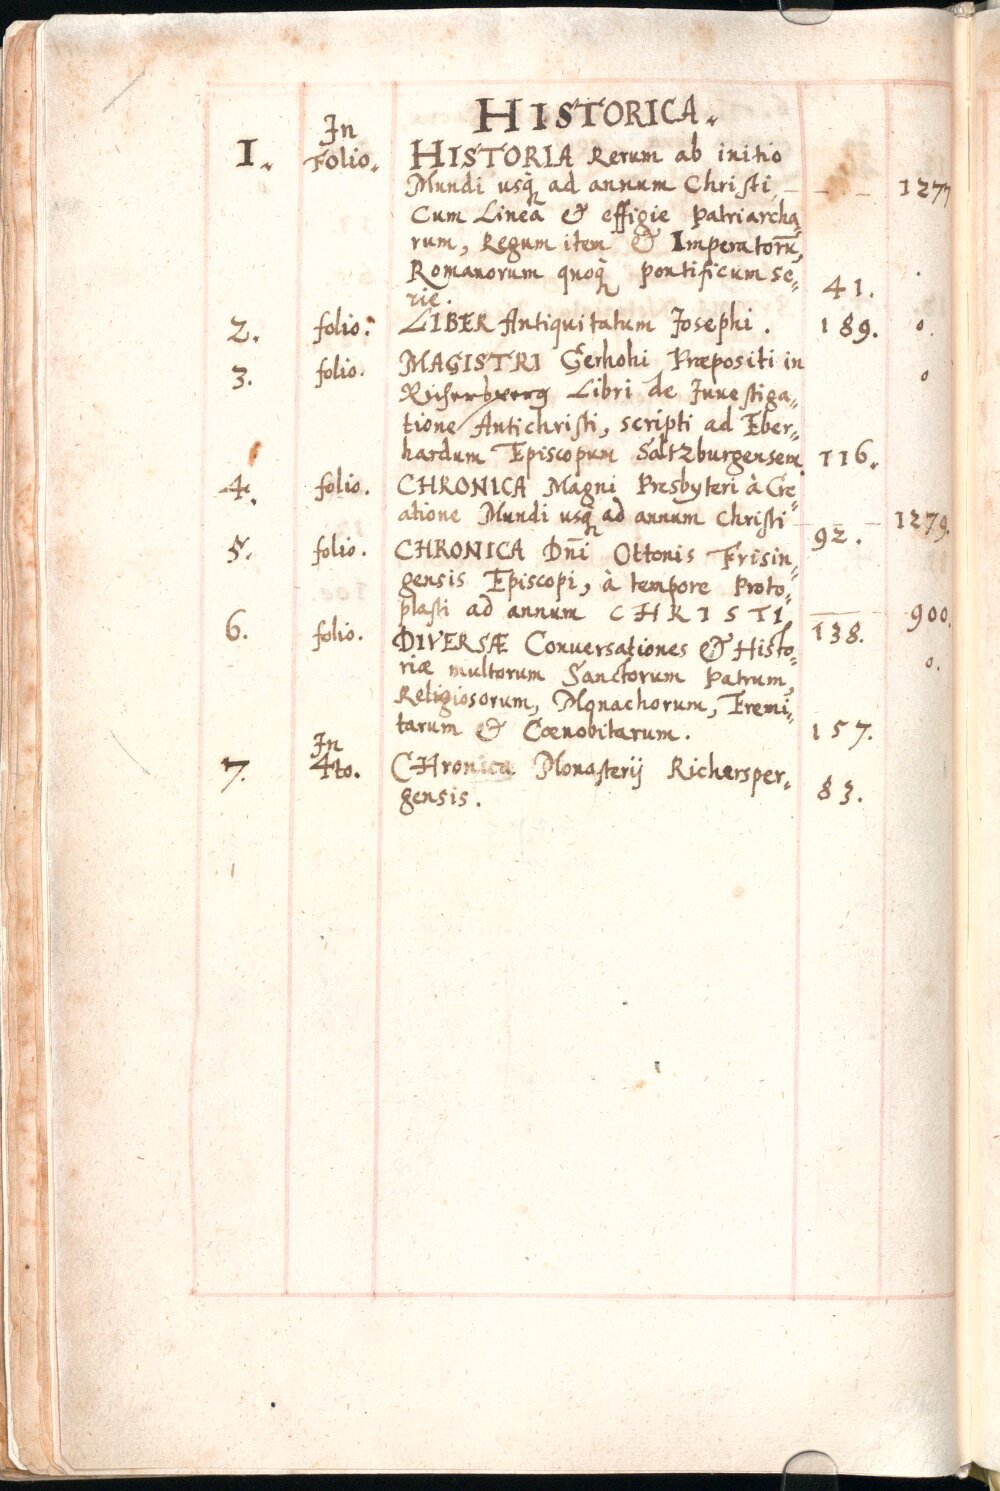 HISTORICA.
I. In Folio. HISTORIA Rerum ab initio
Mundi usq̄ ad annum Christi 1277
Cum Linea & effigie Patriarcha=
rum, Regum item & Imperatorū,
Romanorum quoq̄ pontificum se=
rie. 41.
2. folio. LIBER Antiquitatum Josephi. 189. 0.
3. folio. MAGISTRI Gerhohi Præpositi in 0
Richersperg Libri de Inuestiga=
tione Antichristi, scripti ad Eber=
hardum Episcopum Saltzburgensem 116.
4. folio. CHRONICA Magni Presbyteri à Cre=
atione Mundi usq̄ ad annum Christi 92. 1279.
5. folio. CHRONICA Dn̄i Ottonis Frisin=
gensis Episcopi, à tempore Proto=
plasti ad annum CHRISTI 138. 900.
6. folio. DIVERSÆ Conuersationes & Histo=
riæ multorum Sanctorum Patrum, 0.
Religiosorum, Monachorum, Eremi=
tarum & Cœnobitarum. 157.
7. In 4to. CHronica Monasterij Richersper=
gensis. 83.